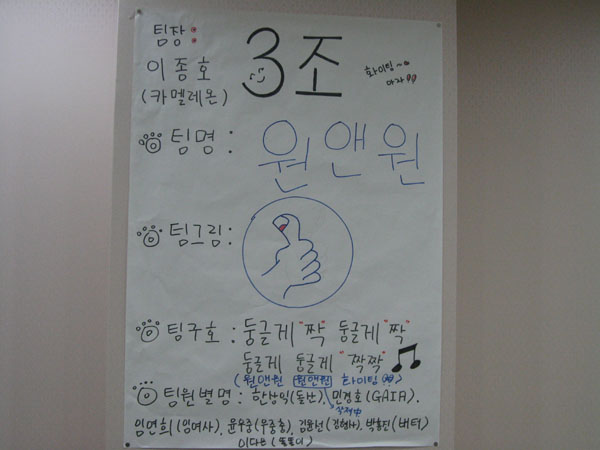 팀장:
3조
이종호
(카멜레온)
화이팅~
아자
팀명: 원앤원
팀그림:
팀구호: 둥글게 "짝" 둥글게 "짝"
둥글게 둥글게 "짝짝"
(원앤원 원앤원 화이팅)
팀원별명: 한상익(돌산), 민경호(GAIA),
임연희(임여사), 문우중(우중충), 김윤선(김형사), 박흥진(버터)